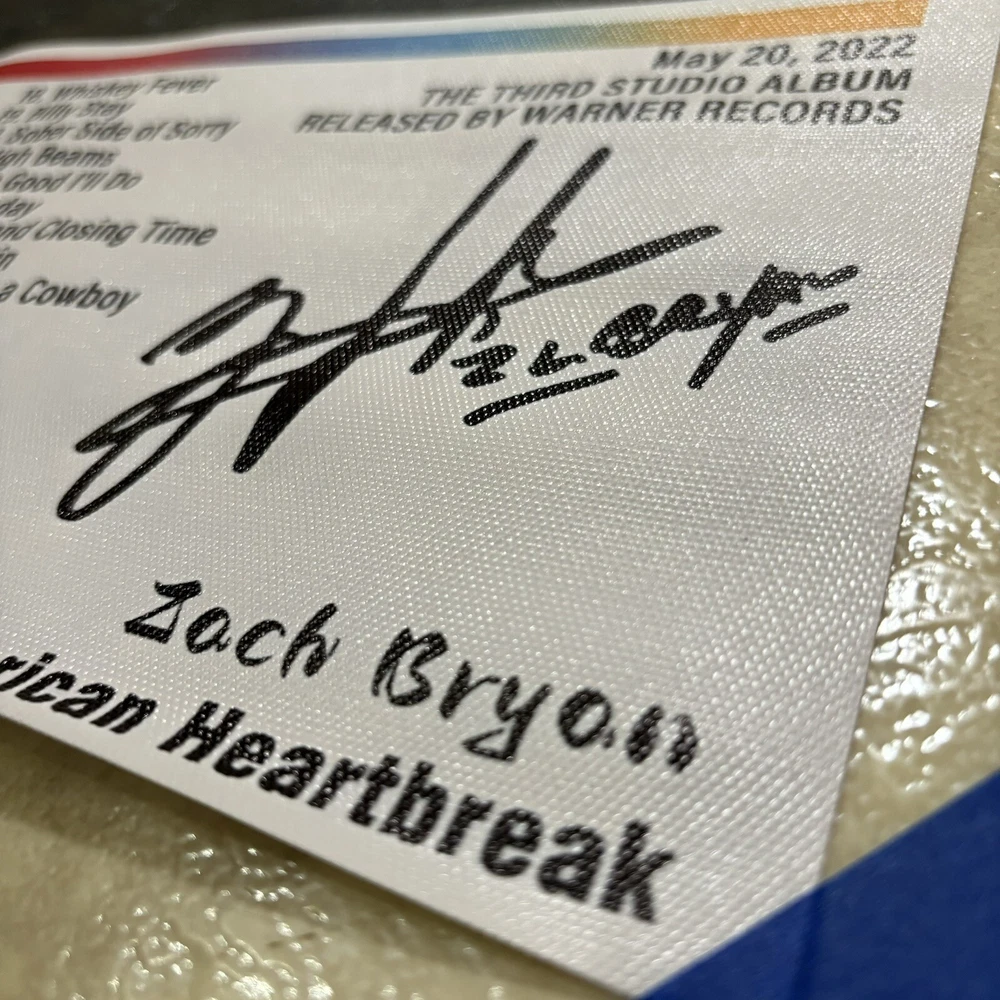 May 20, 2022
THE THIRD STUDIO ALBUM
RELEASED BY WARNER RECORDS
Whiskey Fever
Billy Stay
Sober Side of Sorry
igh Beams
Good I'll Do
day
nd Closing Time
in
a Cowboy
Zach Bryan
rican Heartbreak